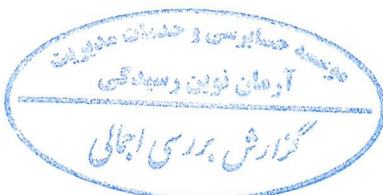 موسسه حسابرسی و خدمات مدیریت
آرمان نوین رسیدگی
گزارش بررسی اجمالی